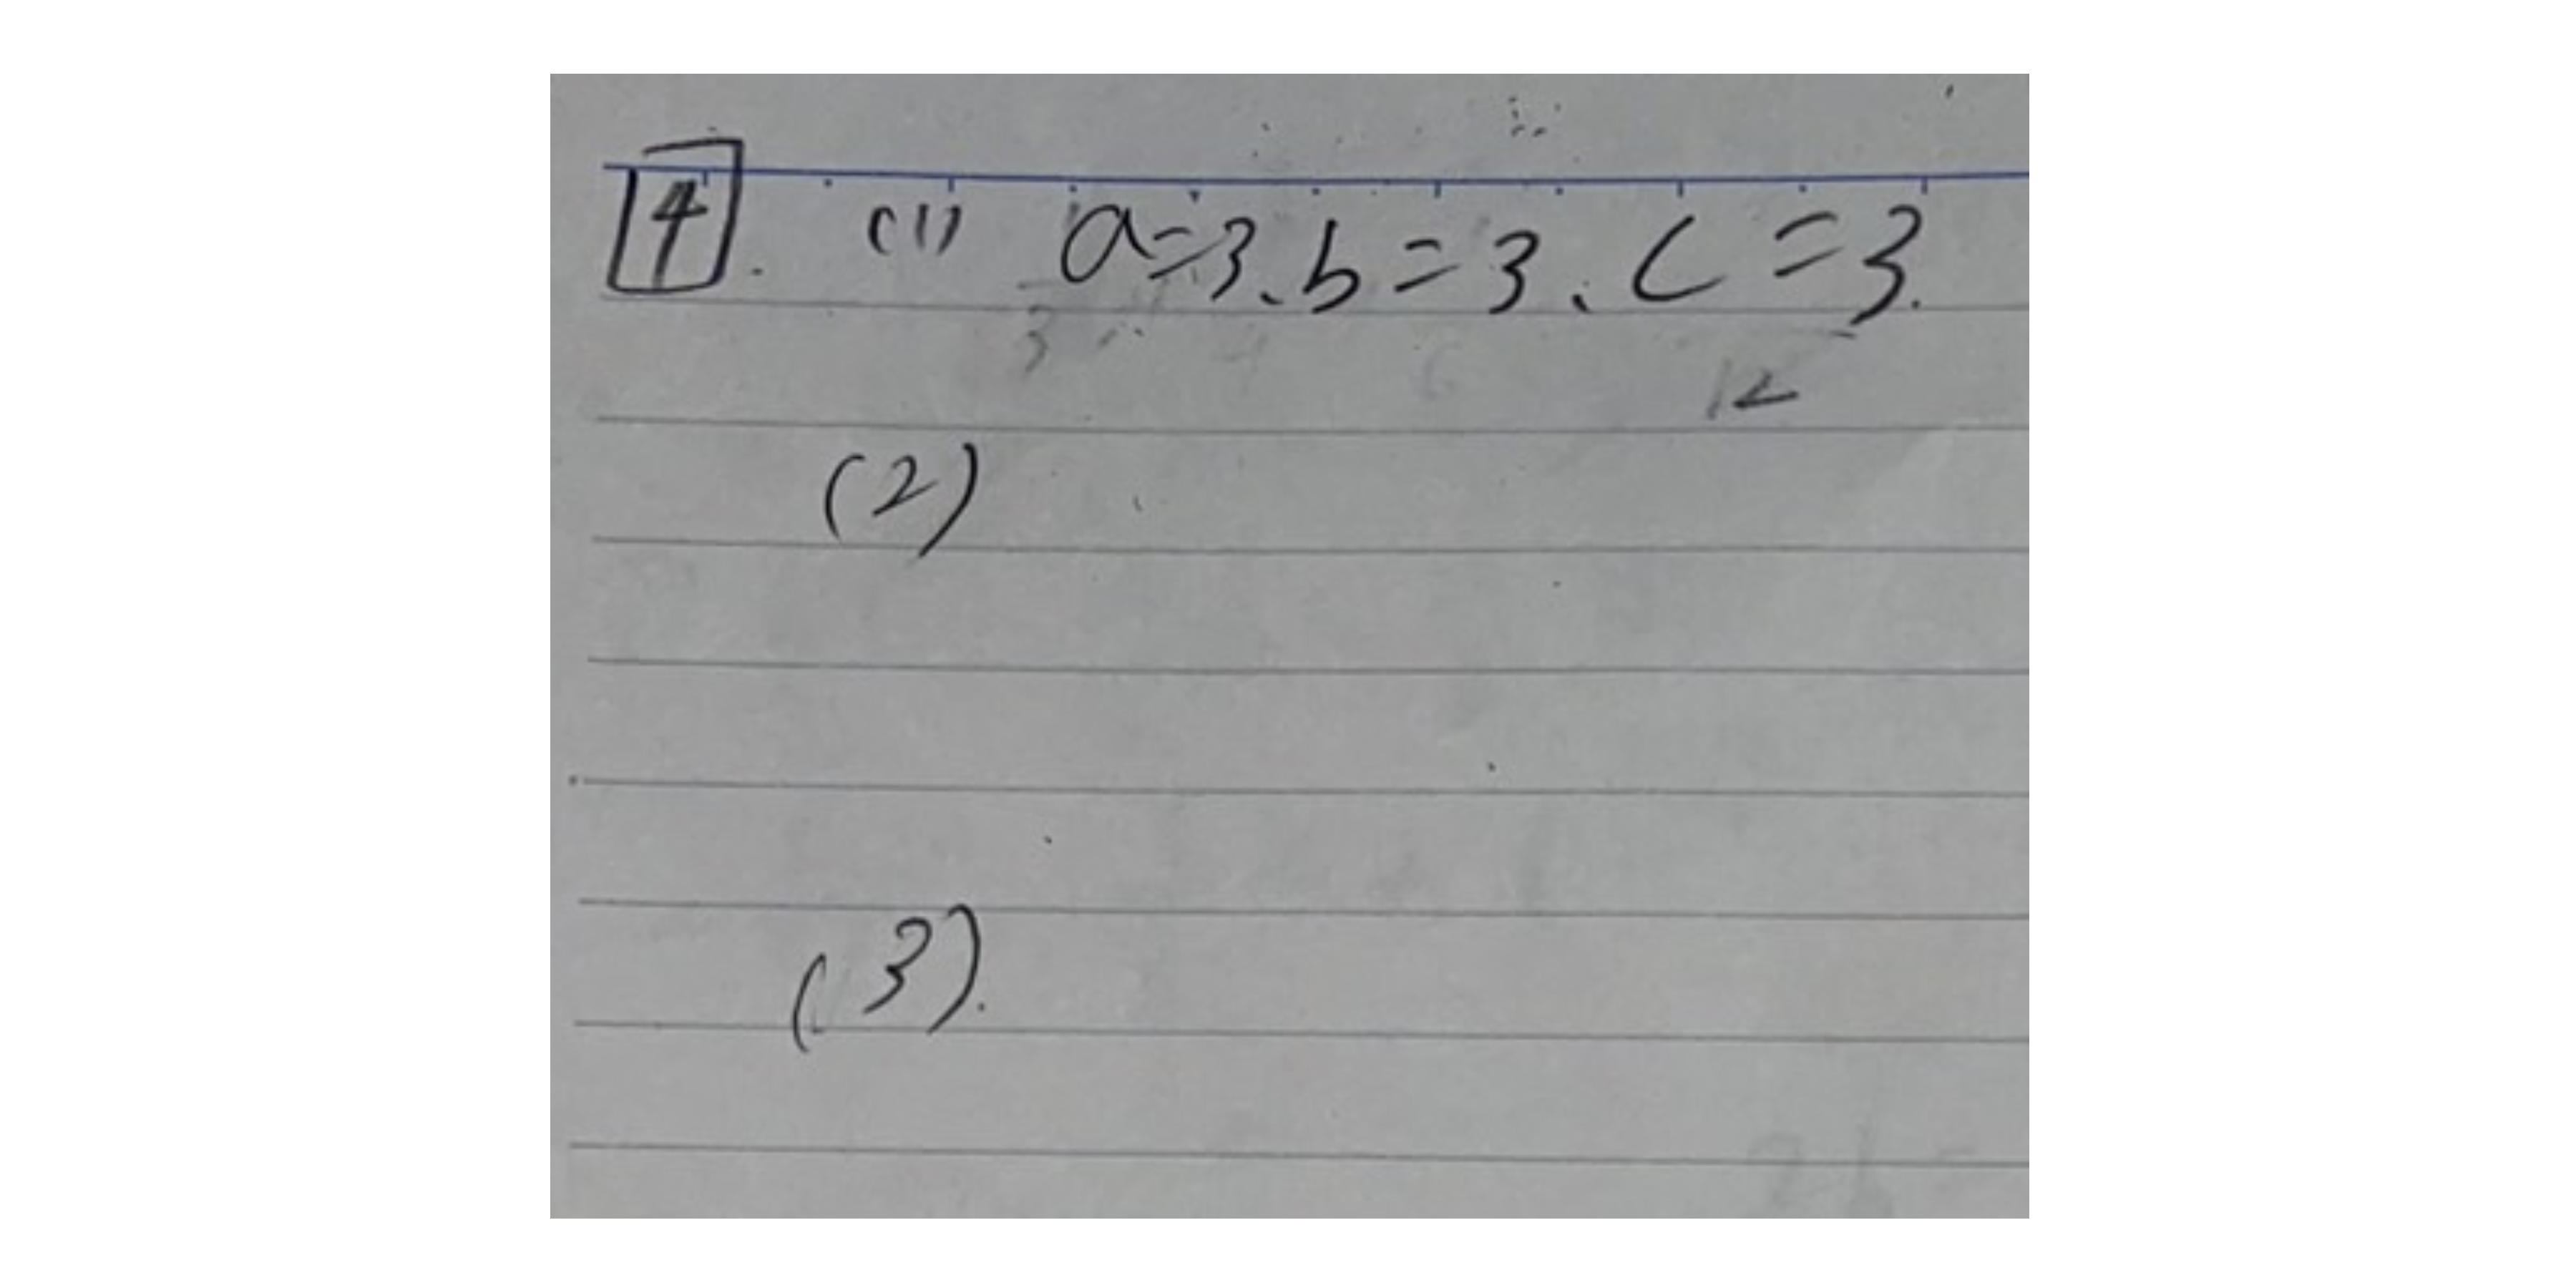 4. (1) a=3、b=3、c=3.
12
(2)
(3).